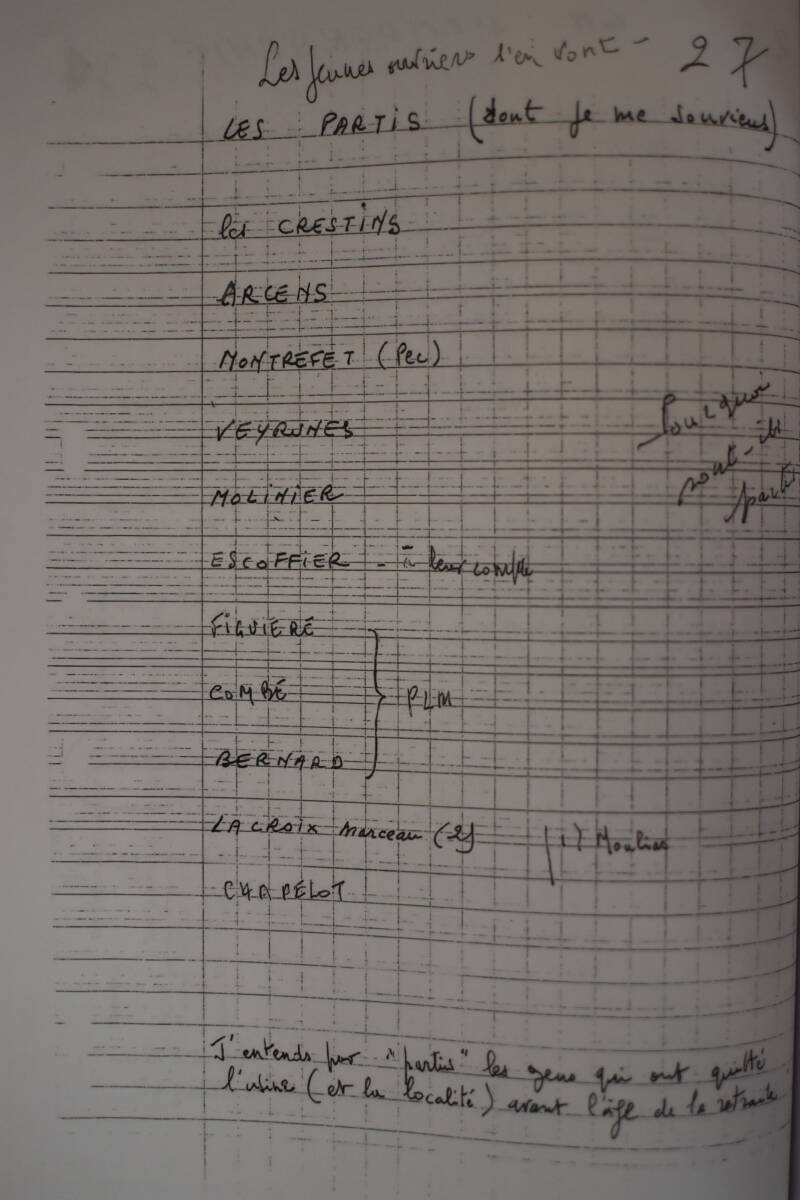 Les jeunes ouvriers s'en vont - 27
LES PARTIS (dont je me souviens)
les CRESTINS
ARCENS
MONTREFET (Pec)
VEYRUNES
Pourquoi
sont-ils
partis
MOLINIER
ESCOFFIER - à leur compte
FIGUIERE
COMBE
PLM
BERNARD
LACROIX Marceau (2) (1) Moulins
CHAPELOT
J'entends par "partis" les gens qui ont quitté
l'usine (et la localité) avant l'âge de la retraite